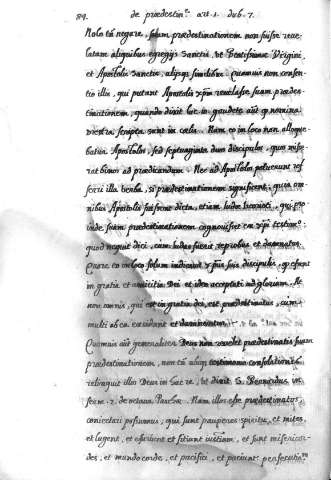 84. de prædestin.e art. 1. dub. 7.
Nolo tñ negare, solum prædestinationem non fuisse reve-
latam aliquibus egregijs Sanctis, et Beatissimæ Virgini,
et Apostolis Sanctis, alijsq; similibus. Quamuis non consen-
tio illis, qui putant Apostolis xp̃m revelasse suam prædes-
tinationem, quando dixit luc. in gaudete aũt q nomina
vestra scripta sunt in cælis. Nam eo in loco non alloque-
batur Apostolos, sed septuaginta duos discipulos, quos mise-
rat binos ad prædicandum. Nec ad Apostolos potuerunt ref
ferri illa verba, si prædestinationem significent, quia om-
nibus Apostolis fuissent dicta, etiam Judæ
inde suam prædestinationem cognouisset ex xp̃i testim.o
quod nequit dici, cum Judas fuerit reprobus et damnatus.
Quare eo in loco solum indicavit xp̃us suis discipulis, q essent
in gratia et amicitia Dei et ideo acceptati ad gloriam. At
non omnis, qui est in gratia dei, est prædestinatus, cum
multi ab ea excidant et damnentur.
Quamuis aũt generaliter Deus non revelet prædestinatis suam
prædestinationem, non tñ absq; testimonio consolationis
reliquit illos Deus in hac re, ut dixit S. Bernardus in
serm. 2. de octava Paschæ. Nam illos esse prædestinatos,
coniectari possumus, qui sunt pauperes spiritu, et mites,
et lugent, et esuriunt et sitiunt iustitiam, et sunt misericor-
des, et mundo corde, et pacifici, et patiunt persecutio.em